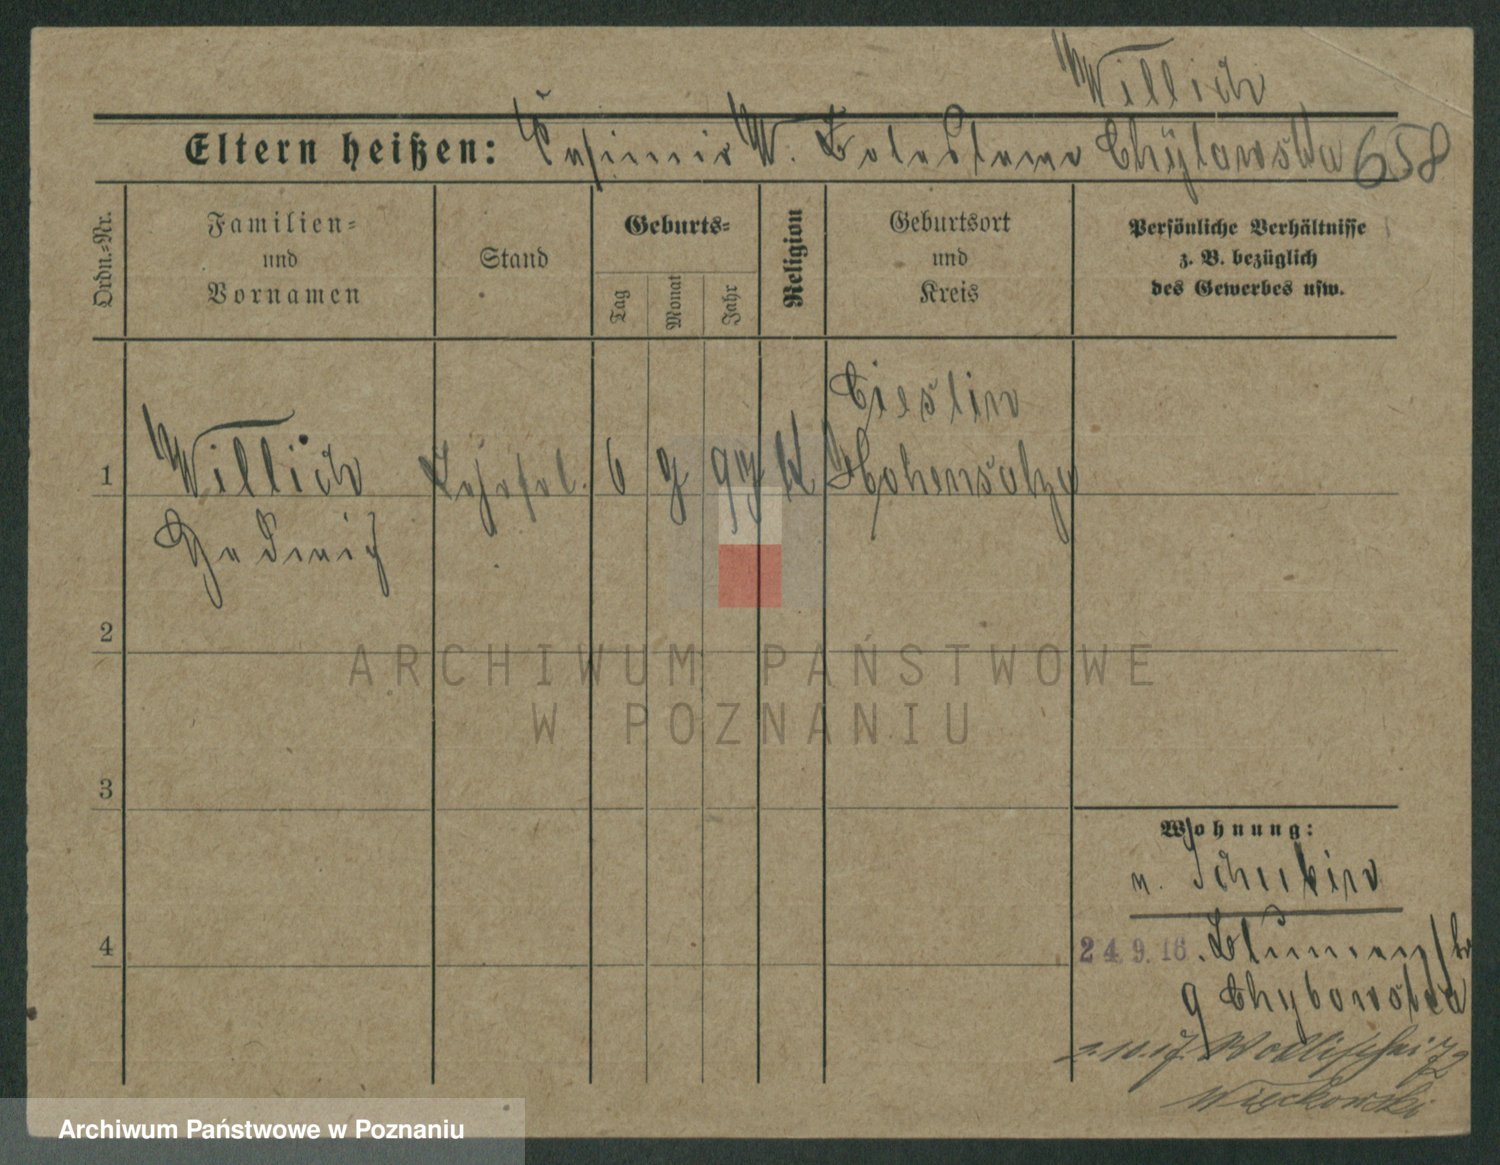 Willich
Eltern heißen: Casimir W. Boleslawa Chylewska 658
Ordn.-Nr.
Familien-
und
Vornamen
Stand
Geburts-
Tag
Monat
Jahr
Religion
Geburtsort
und
Kreis
Persönliche Verhältnisse
z. B. bezüglich
des Gewerbes usw.
Cieslin
1 Willich 6 9 97 K Hohensalza
Hedwig
2
ARCHIWUM PAŃSTWOWE
W POZNANIU
3
Wohnung:
n. Schubin
4
24. 9. 16. Blumen
Chybowska
2.10.17.
Więckowski
Archiwum Państwowe w Poznaniu